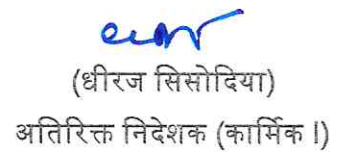 (धीरज सिसोदिया)
अतिरिक्त निदेशक (कार्मिक I)